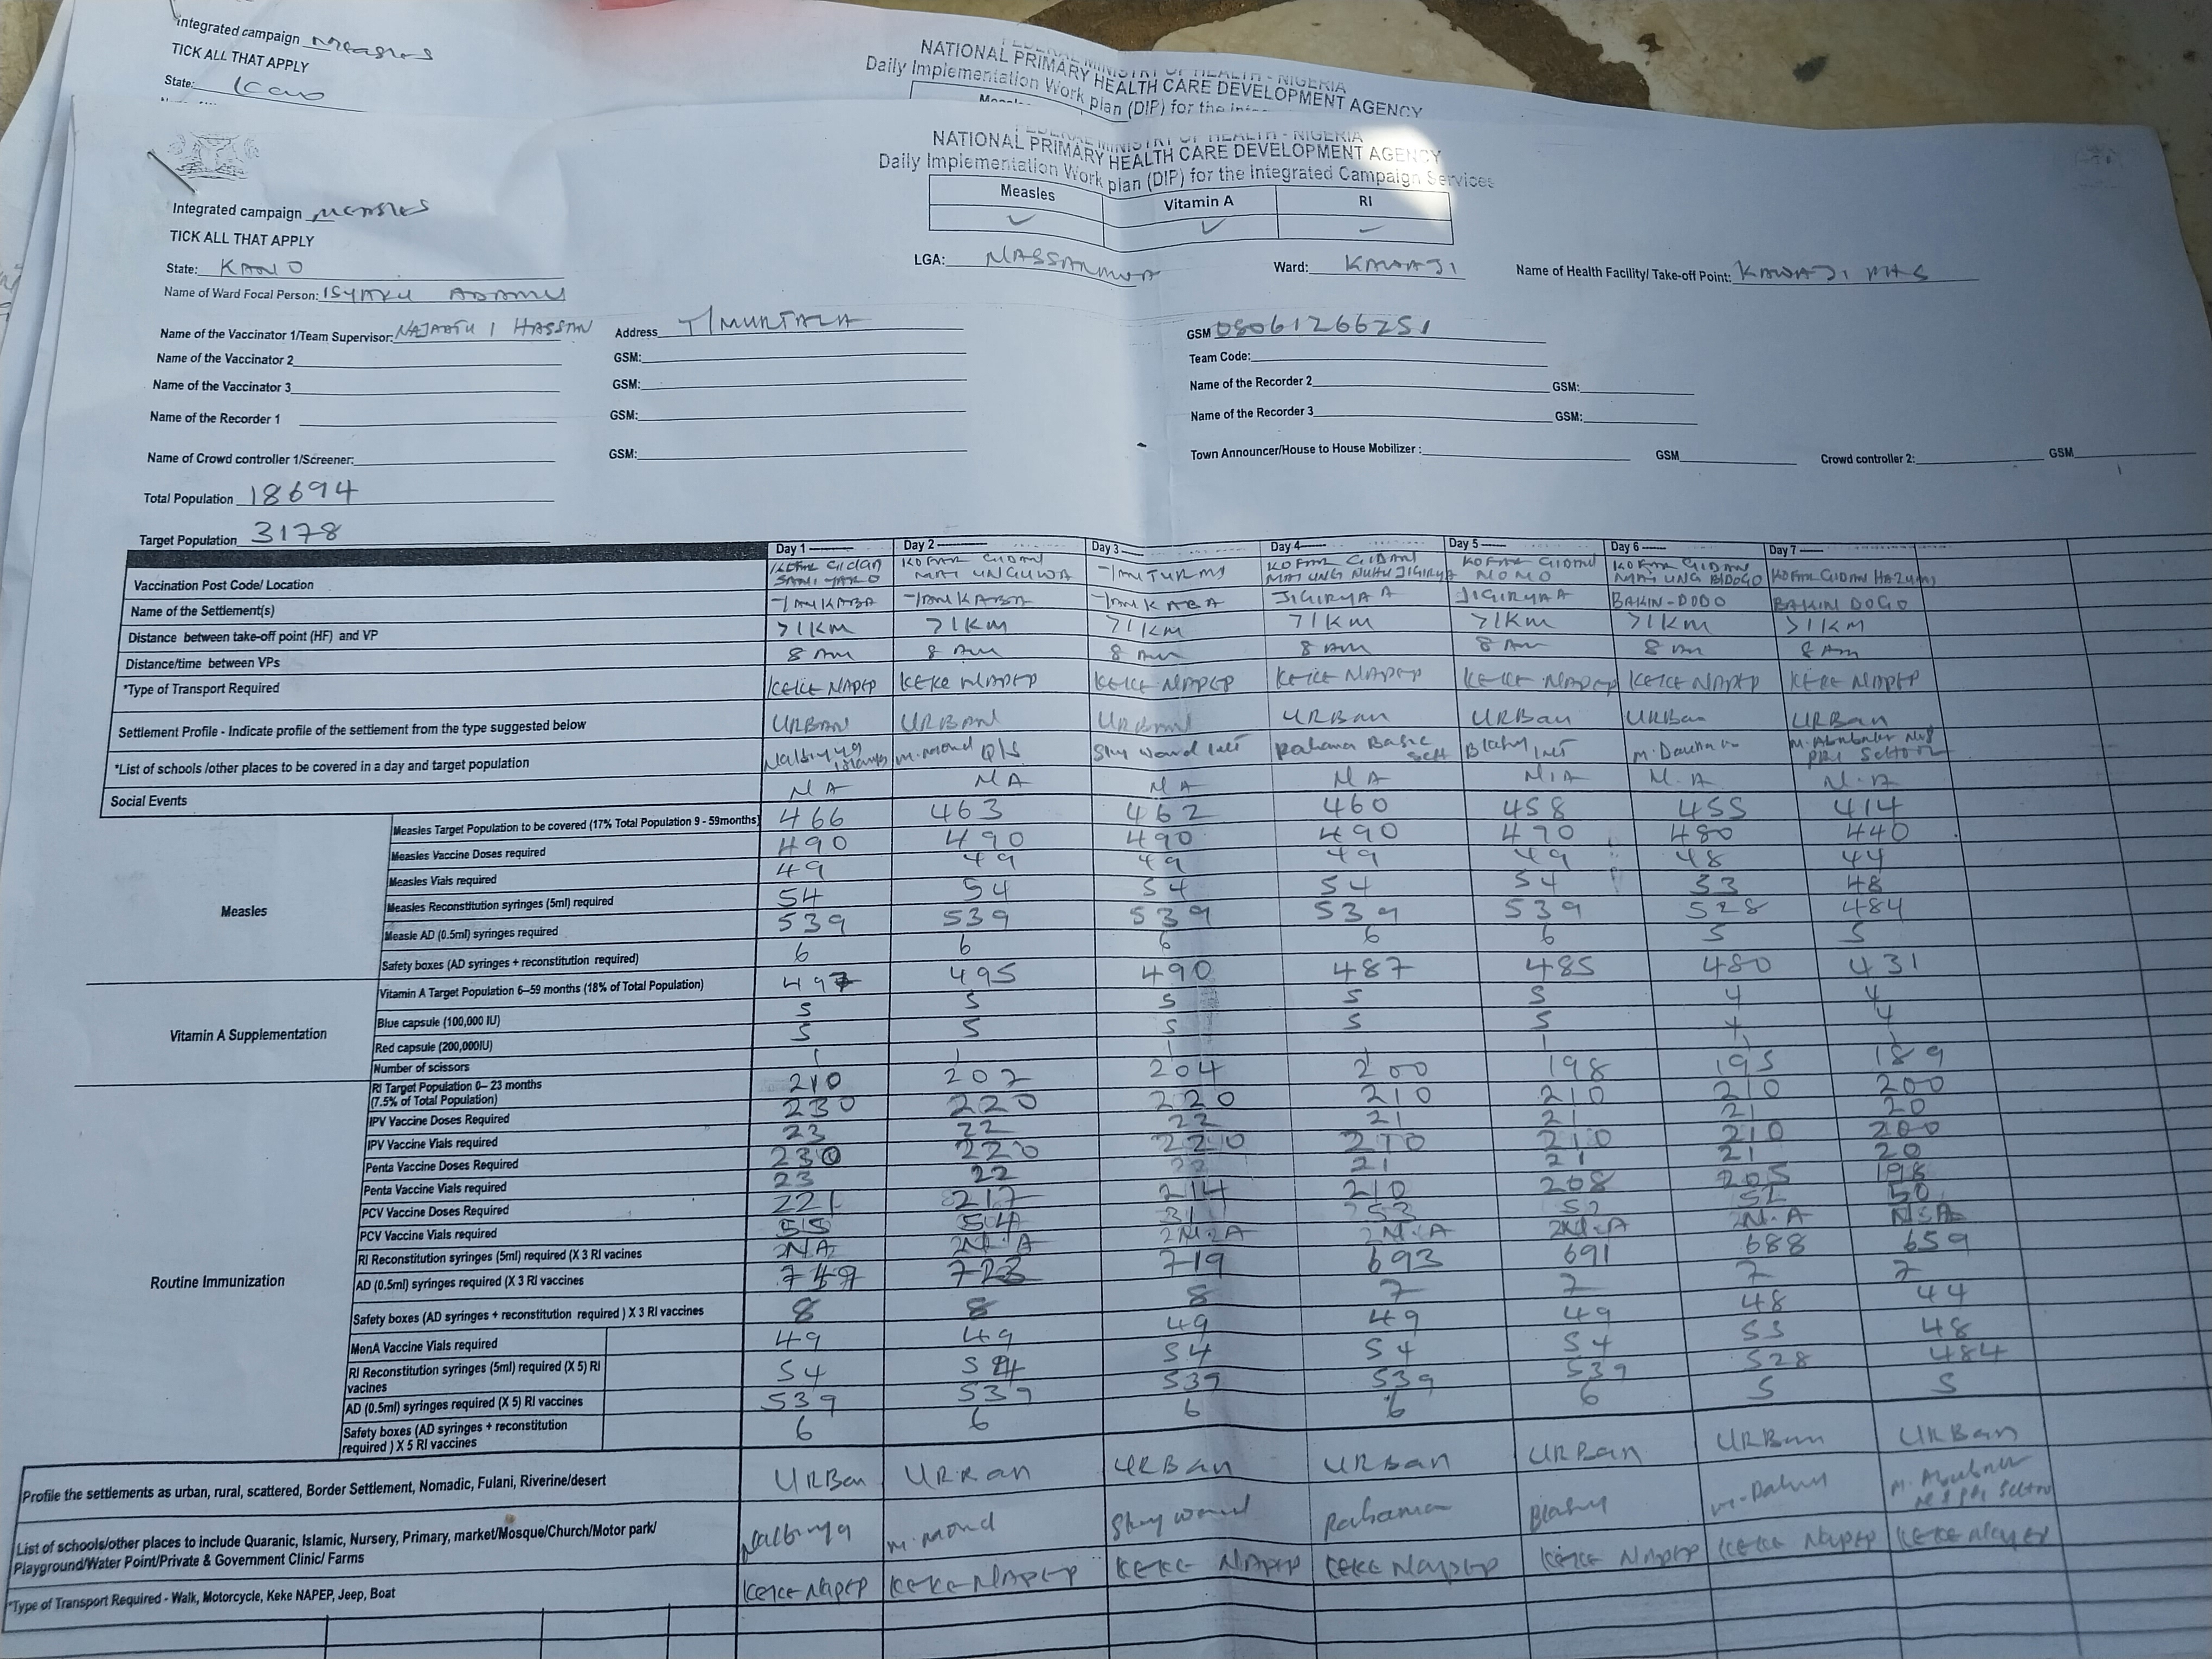 Integrated campaign Measles
TICK ALL THAT APPLY
State: Kano
FEDERAL MINISTRY OF HEALTH - NIGERIA
NATIONAL PRIMARY HEALTH CARE DEVELOPMENT AGENCY
Daily Implementation Work plan (DIP) for the
FEDERAL MINISTRY OF HEALTH - NIGERIA
NATIONAL PRIMARY HEALTH CARE DEVELOPMENT AGENCY
Daily Implementation Work plan (DIP) for the Integrated Campaign Services
Measles Vitamin A RI
✓ ✓ ✓
Integrated campaign MEASLES
TICK ALL THAT APPLY
State: KANO LGA: NASSARAWA Ward: KAWAJI Name of Health Facility/ Take-off Point: KAWAJI PHS
Name of Ward Focal Person: ISYAKU ADAMU
Name of the Vaccinator 1/Team Supervisor: NAJAATU I HASSAN Address T/MURTALA GSM 08061266251
Name of the Vaccinator 2 GSM: Team Code:
Name of the Vaccinator 3 GSM: Name of the Recorder 2 GSM:
Name of the Recorder 1 GSM: Name of the Recorder 3 GSM:
Name of Crowd controller 1/Screener: GSM: Town Announcer/House to House Mobilizer : GSM Crowd controller 2: GSM
Total Population 18694
Target Population 3178
Day 1 Day 2 Day 3 Day 4 Day 5 Day 6 Day 7
Vaccination Post Code/ Location KOFAR GIDAN SANI YARO KOFAR GIDAN MAI UNGUWA KOFAR GIDAN MAI UNG NUHU JIGIRYA KOFAR GIDAN MOMO KOFAR GIDAN MAI UNG B/DOGO KOFAR GIDAN
Name of the Settlement(s) JIGIRYAA JIGIRYAA BAKIN-DODO BAKIN DOGO
Distance between take-off point (HF) and VP >1KM >1KM >1KM >1KM >1KM >1KM >1KM
Distance/time between VPs 8 Am 8 Am 8 Am 8 Am 8 Am 8 Am 8 Am
*Type of Transport Required KEKE NAPEP KEKE NAPEP KEKE NAPEP KEKE NAPEP KEKE NAPEP KEKE NAPEP KEKE NAPEP
Settlement Profile - Indicate profile of the settlement from the type suggested below URBAN URBAN URBAN URBan URBan URBan URBan
*List of schools /other places to be covered in a day and target population Rahama Basic Sch
Social Events NA NA NA NA N/A N.A N.A
Measles
Measles Target Population to be covered (17% Total Population 9 - 59months) 466 463 462 460 458 455 414
Measles Vaccine Doses required 490 490 490 490 490 480 440
Measles Vials required 49 49 49 49 49 48 44
Measles Reconstitution syringes (5ml) required 54 54 54 54 54 53 48
Measle AD (0.5ml) syringes required 539 539 539 539 539 528 484
Safety boxes (AD syringes + reconstitution required) 6 6 6 6 6 5 5
Vitamin A Supplementation
Vitamin A Target Population 6–59 months (18% of Total Population) 497 495 490 487 485 480 431
Blue capsule (100,000 IU) 5 5 5 5 5 4 4
Red capsule (200,000IU) 5 5 5 5 5 4 4
Number of scissors 1 1 1 1 1 1 1
Routine Immunization
RI Target Population 0– 23 months (7.5% of Total Population) 210 207 204 200 198 195 189
IPV Vaccine Doses Required 230 220 220 210 210 210 200
IPV Vaccine Vials required 23 22 22 21 21 21 20
Penta Vaccine Doses Required 230 220 210 210 210 200
Penta Vaccine Vials required 23 22 22 21 21 21 20
PCV Vaccine Doses Required 221 217 214 210 208 205 198
PCV Vaccine Vials required 55 54 53 52 52 50
RI Reconstitution syringes (5ml) required (X 3 RI vacines
AD (0.5ml) syringes required (X 3 RI vaccines 719 693 691 688 659
Safety boxes (AD syringes + reconstitution required ) X 3 RI vaccines 8 8 8 7 7 7 7
MenA Vaccine Vials required 49 49 49 49 49 48 44
RI Reconstitution syringes (5ml) required (X 5) RI vacines 54 54 54 54 54 53 48
AD (0.5ml) syringes required (X 5) RI vaccines 539 539 539 539 539 528 484
Safety boxes (AD syringes + reconstitution required ) X 5 RI vaccines 6 6 6 6 6 5 5
Profile the settlements as urban, rural, scattered, Border Settlement, Nomadic, Fulani, Riverine/desert URBan URBan URBan URBan URBan URBan URBan
List of schools/other places to include Quaranic, Islamic, Nursery, Primary, market/Mosque/Church/Motor park/ Playground/Water Point/Private & Government Clinic/ Farms Rahama
*Type of Transport Required - Walk, Motorcycle, Keke NAPEP, Jeep, Boat KEKE NAPEP KEKE NAPEP KEKE NAPEP KEKE NAPEP KEKE NAPEP KEKE NAPEP KEKE NAPEP